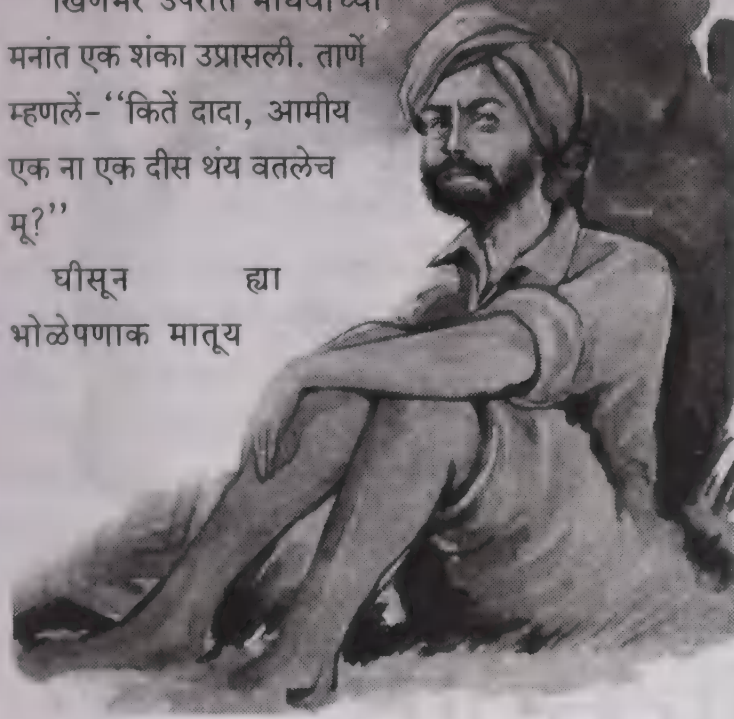 खिणभर उपरांत माधवाच्या
मनांत एक शंका उप्रासली. ताणें
म्हणलें-‘‘कितें दादा, आमीय
एक ना एक दीस थंय वतलेच
मू?’’
घीसून ह्या
भोळेपणाक मातूय